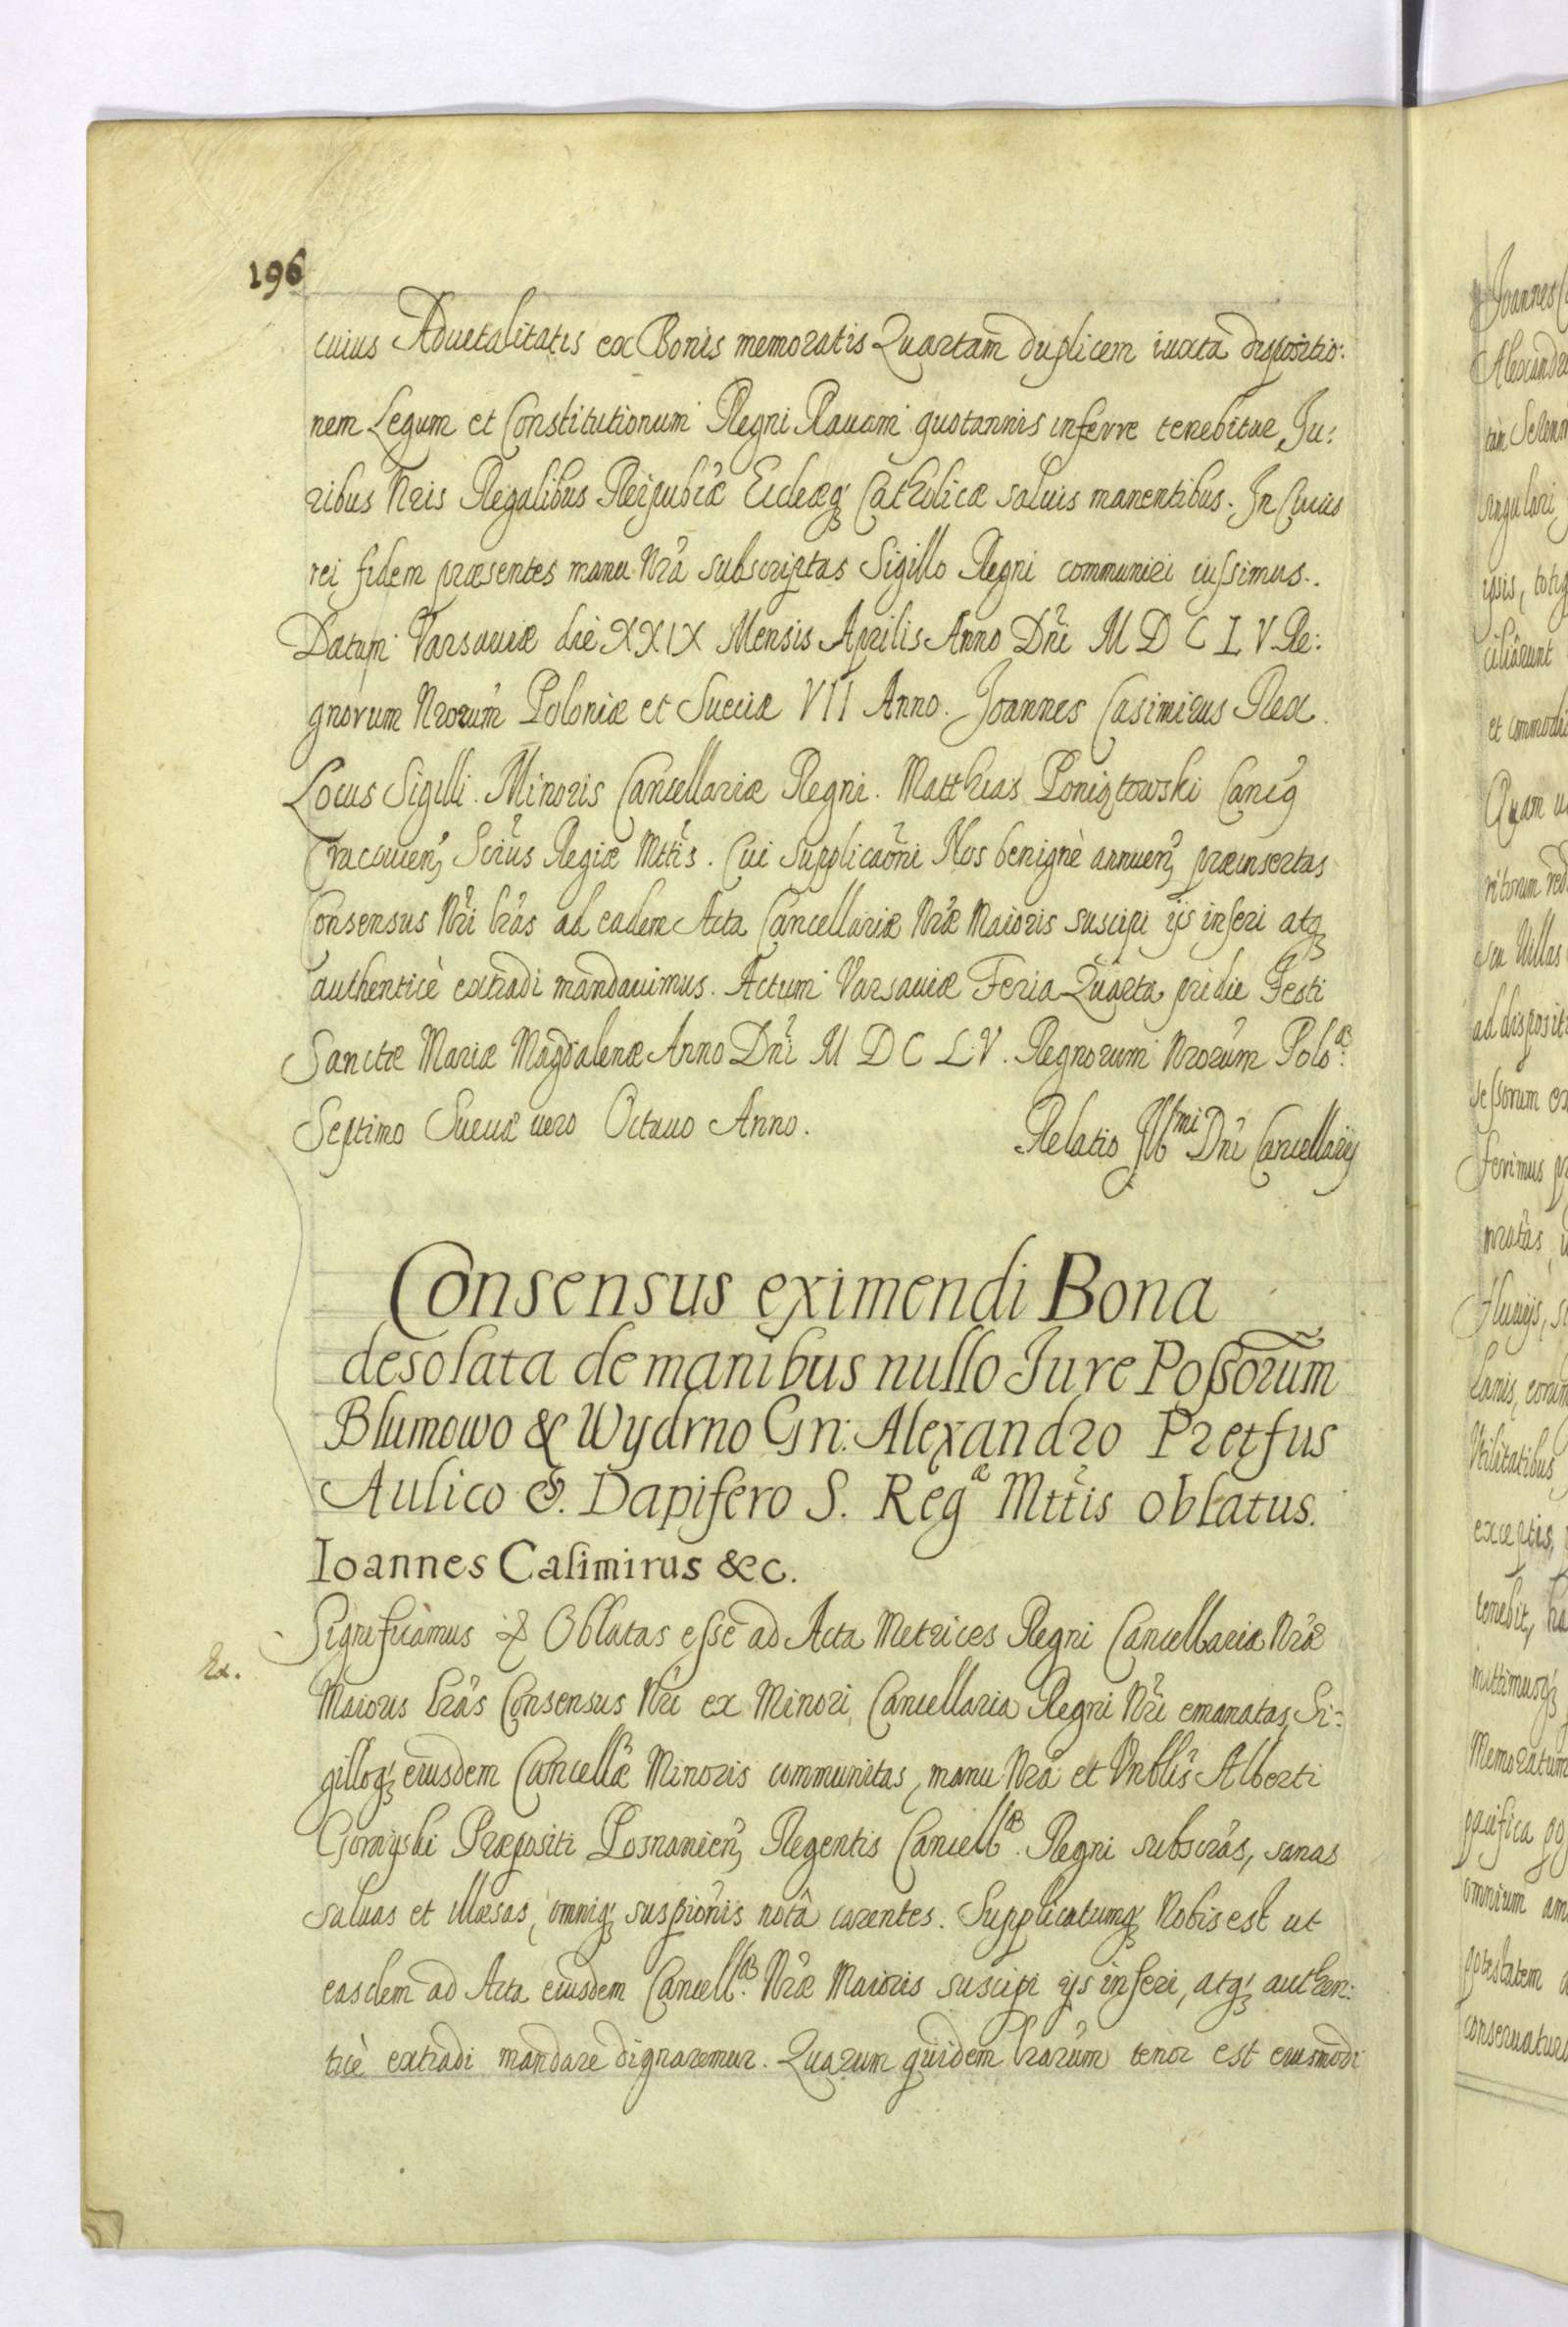 196
cuius Aduitalitatis ex Bonis memoratis Quartam duplicem iuxta dispositio:
nem Legum et Constitutionum Regni Rauam quotannis inferre tenebitur, Ju:
ribus Nr̃is Regalibus Reipub͠cæ Eccl͠æq́ꝫ Catholicæ saluis manentibus. In Cuius
rei fidem præsentes manu Nr̃a subscriptas Sigillo Regni communiri iussimus.
Datum Varsauiæ die XXIX Mensis Aprilis Anno Dñi M D C L V Re:
gnorum Nr̃orum Poloniæ et Sueciæ VII Anno. Joannes Casimirus Rex.
Locus Sigilli. Minoris Cancellariæ Regni. Matthias Poniatowski Canc͠ꝫ
Cracouien̄ꝫ Scr̃ius Regiæ Mtt̃is. Cui Supplicaõni Nos benignè annuen̄ꝫ præinsertas
Consensus Nr̃i lr̃as ad eadem Acta Cancellariæ Nr̃æ Maioris suscipi ijs inseri atqꝫ
authenticè extradi mandauimus. Actum Varsauiæ Feria Quarta pridie Festi
Sanctæ Mariæ Magdalenæ Anno Dñi M D C L V. Regnorum Nr̃orum Polo:æ
Septimo Sueciæ uero Octauo Anno. Relatio Illmi Dñi Cancellarij
Consensus eximendi Bona
desolata de manibus nullo Jure Poss͠orum
Blumowo & Wydrno Gn: Alexandro Pretfus
Aulico & Dapifero S. Regæ Mtt̃is oblatus.
Ioannes Casimirus &c.
Significamus & Oblatas esse ad Acta Metrices Regni Cancellariæ Nr̃æ
Ex.
Maioris lr̃as Consensus Nr̃i ex Minori Cancellaria Regni Nr̃i emanatas, Si:
gilloq́ꝫ eiusdem Cancell͠æ Minoris communitas, manu Nr̃a et Vnbl͠is Alberti
Gornyski Præpositi Posnanien̄ꝫ Regentis Cancellæ. Regni subscr̃as, sanas
saluas et illæsas, omniq́ꝫ suspiõnis notâ carentes. Supplicatumq́ꝫ Nobis est ut
easdem ad Acta eiusdem Cancell:æ Nr̃æ Maioris suscipi ijs inseri, atq́ꝫ authen:
ticè extradi mandare dignaremur. Quarum quidem lr̃arum tenor est eiusmodi